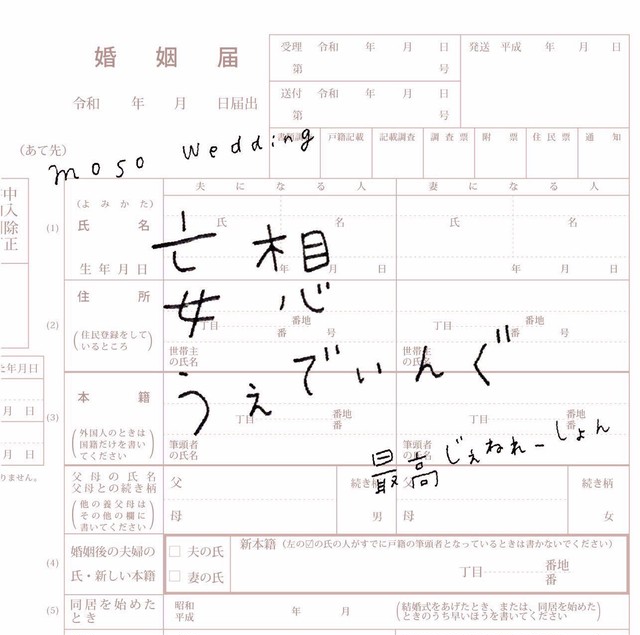 婚姻届
令和 年 月 日届出
受理 令和 年 月 日
第 号
送付 令和 年 月 日
第 号
発送 平成 年 月 日
戸籍記載 記載調査 調査票 附票 住民票 通知
(あて先)
moso wedding
夫になる人 妻になる人
(1)
(よみかた)
氏名
氏 名 氏 名
生年月日
年 月 日 年 月 日
亡 相
女 心
うぇでぃんぐ
(2)
住所
(住民登録をしているところ)
丁目 番地 番 号
丁目 番地 番 号
世帯主の氏名
世帯主の氏名
(3)
本籍
(外国人のときは国籍だけを書いてください)
丁目 番地 番
丁目 番地 番
筆頭者の氏名
筆頭者の氏名
最高じぇねれーしょん
父母の氏名
父母との続き柄
(他の養父母はその他の欄に書いてください)
父 続き柄 父 続き柄
母 男 母 女
(4)
婚姻後の夫婦の氏・新しい本籍
□夫の氏
□妻の氏
新本籍(左の☑の氏の人がすでに戸籍の筆頭者となっているときは書かないでください)
丁目 番地 番
(5)
同居を始めたとき
昭和
平成
年 月
(結婚式をあげたとき、または、同居を始めたときのうち早いほうを書いてください)
年月日
月 日
月 日
りません。